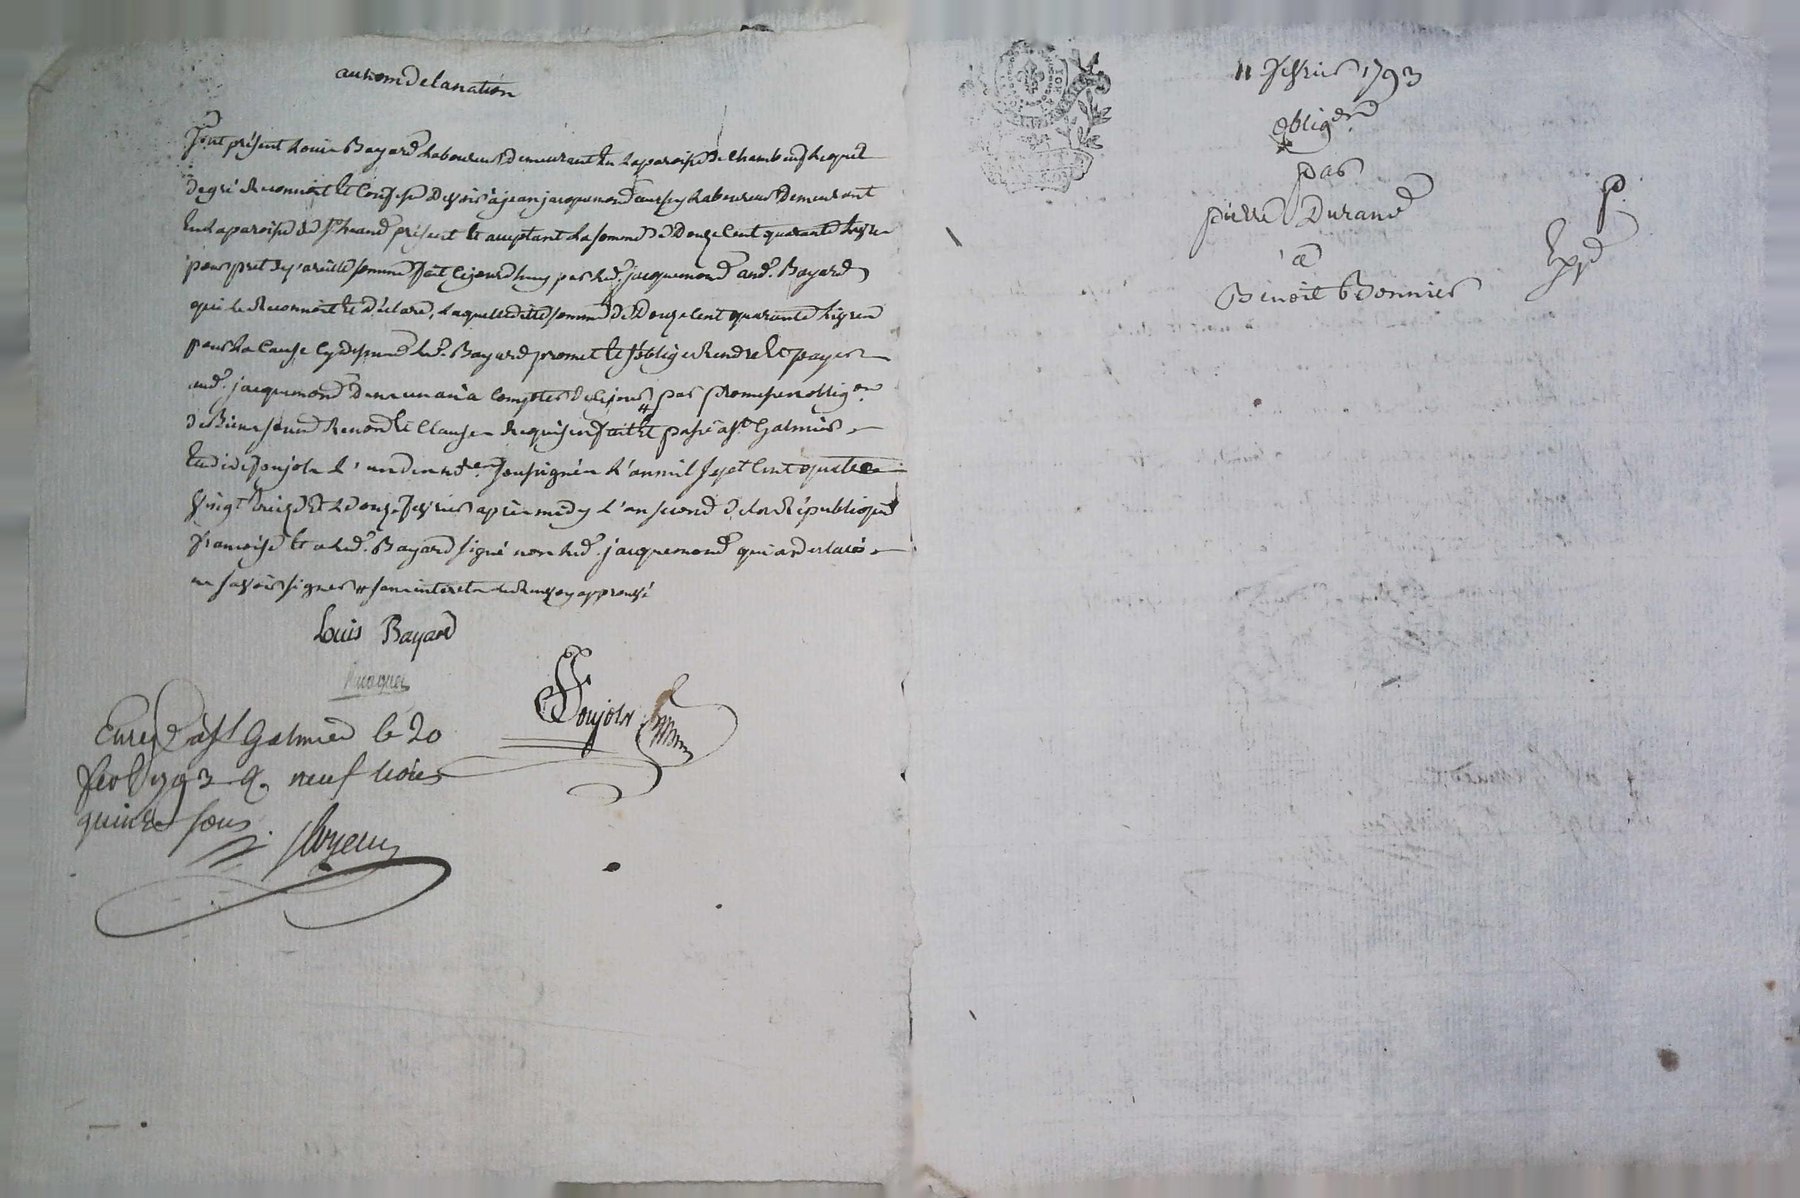 au nom de la nation
Fut présent Louis Bayard Laboureur demeurant en la paroisse de Chambeuf lequel
de gré reconnoit et confesse devoir à jean jacquemond Laboureur demeurant
en la paroisse de présent et acceptant la somme de Douze cent quarante livres
pour pret de pareille somme fait cejourd'huy par led. jacquemond aud. Bayard
qui le reconnoit et déclare, laquelle ditte somme de Douze cent quarante livres
pour la cause cy dessus led. Bayard promet et s'oblige rendre et payer
aud. jacquemond dans un an à compter de ce jour # par promesse oblig.on
de Biens soumd. Renond. et Clauses requises fait et passé à st Galmier
Etude de Soujols l'un des nd.res soussignés l'an mil sept cent quatre
vingt treize et le onze fevrier après midy l'an second de la République
françoise et a led. Bayard signé non led. jacquemond qui a déclaré
ne savoir signer # sans interets approuvé
Louis Bayard
Soujols
Enreg. à st Galmier le 20
fev. 1793 R. neuf livres
quinze sous
11 fevrier 1793
oblig.on
par
pierre Durand
à
Benoit Bonnier
p.
Exp.d